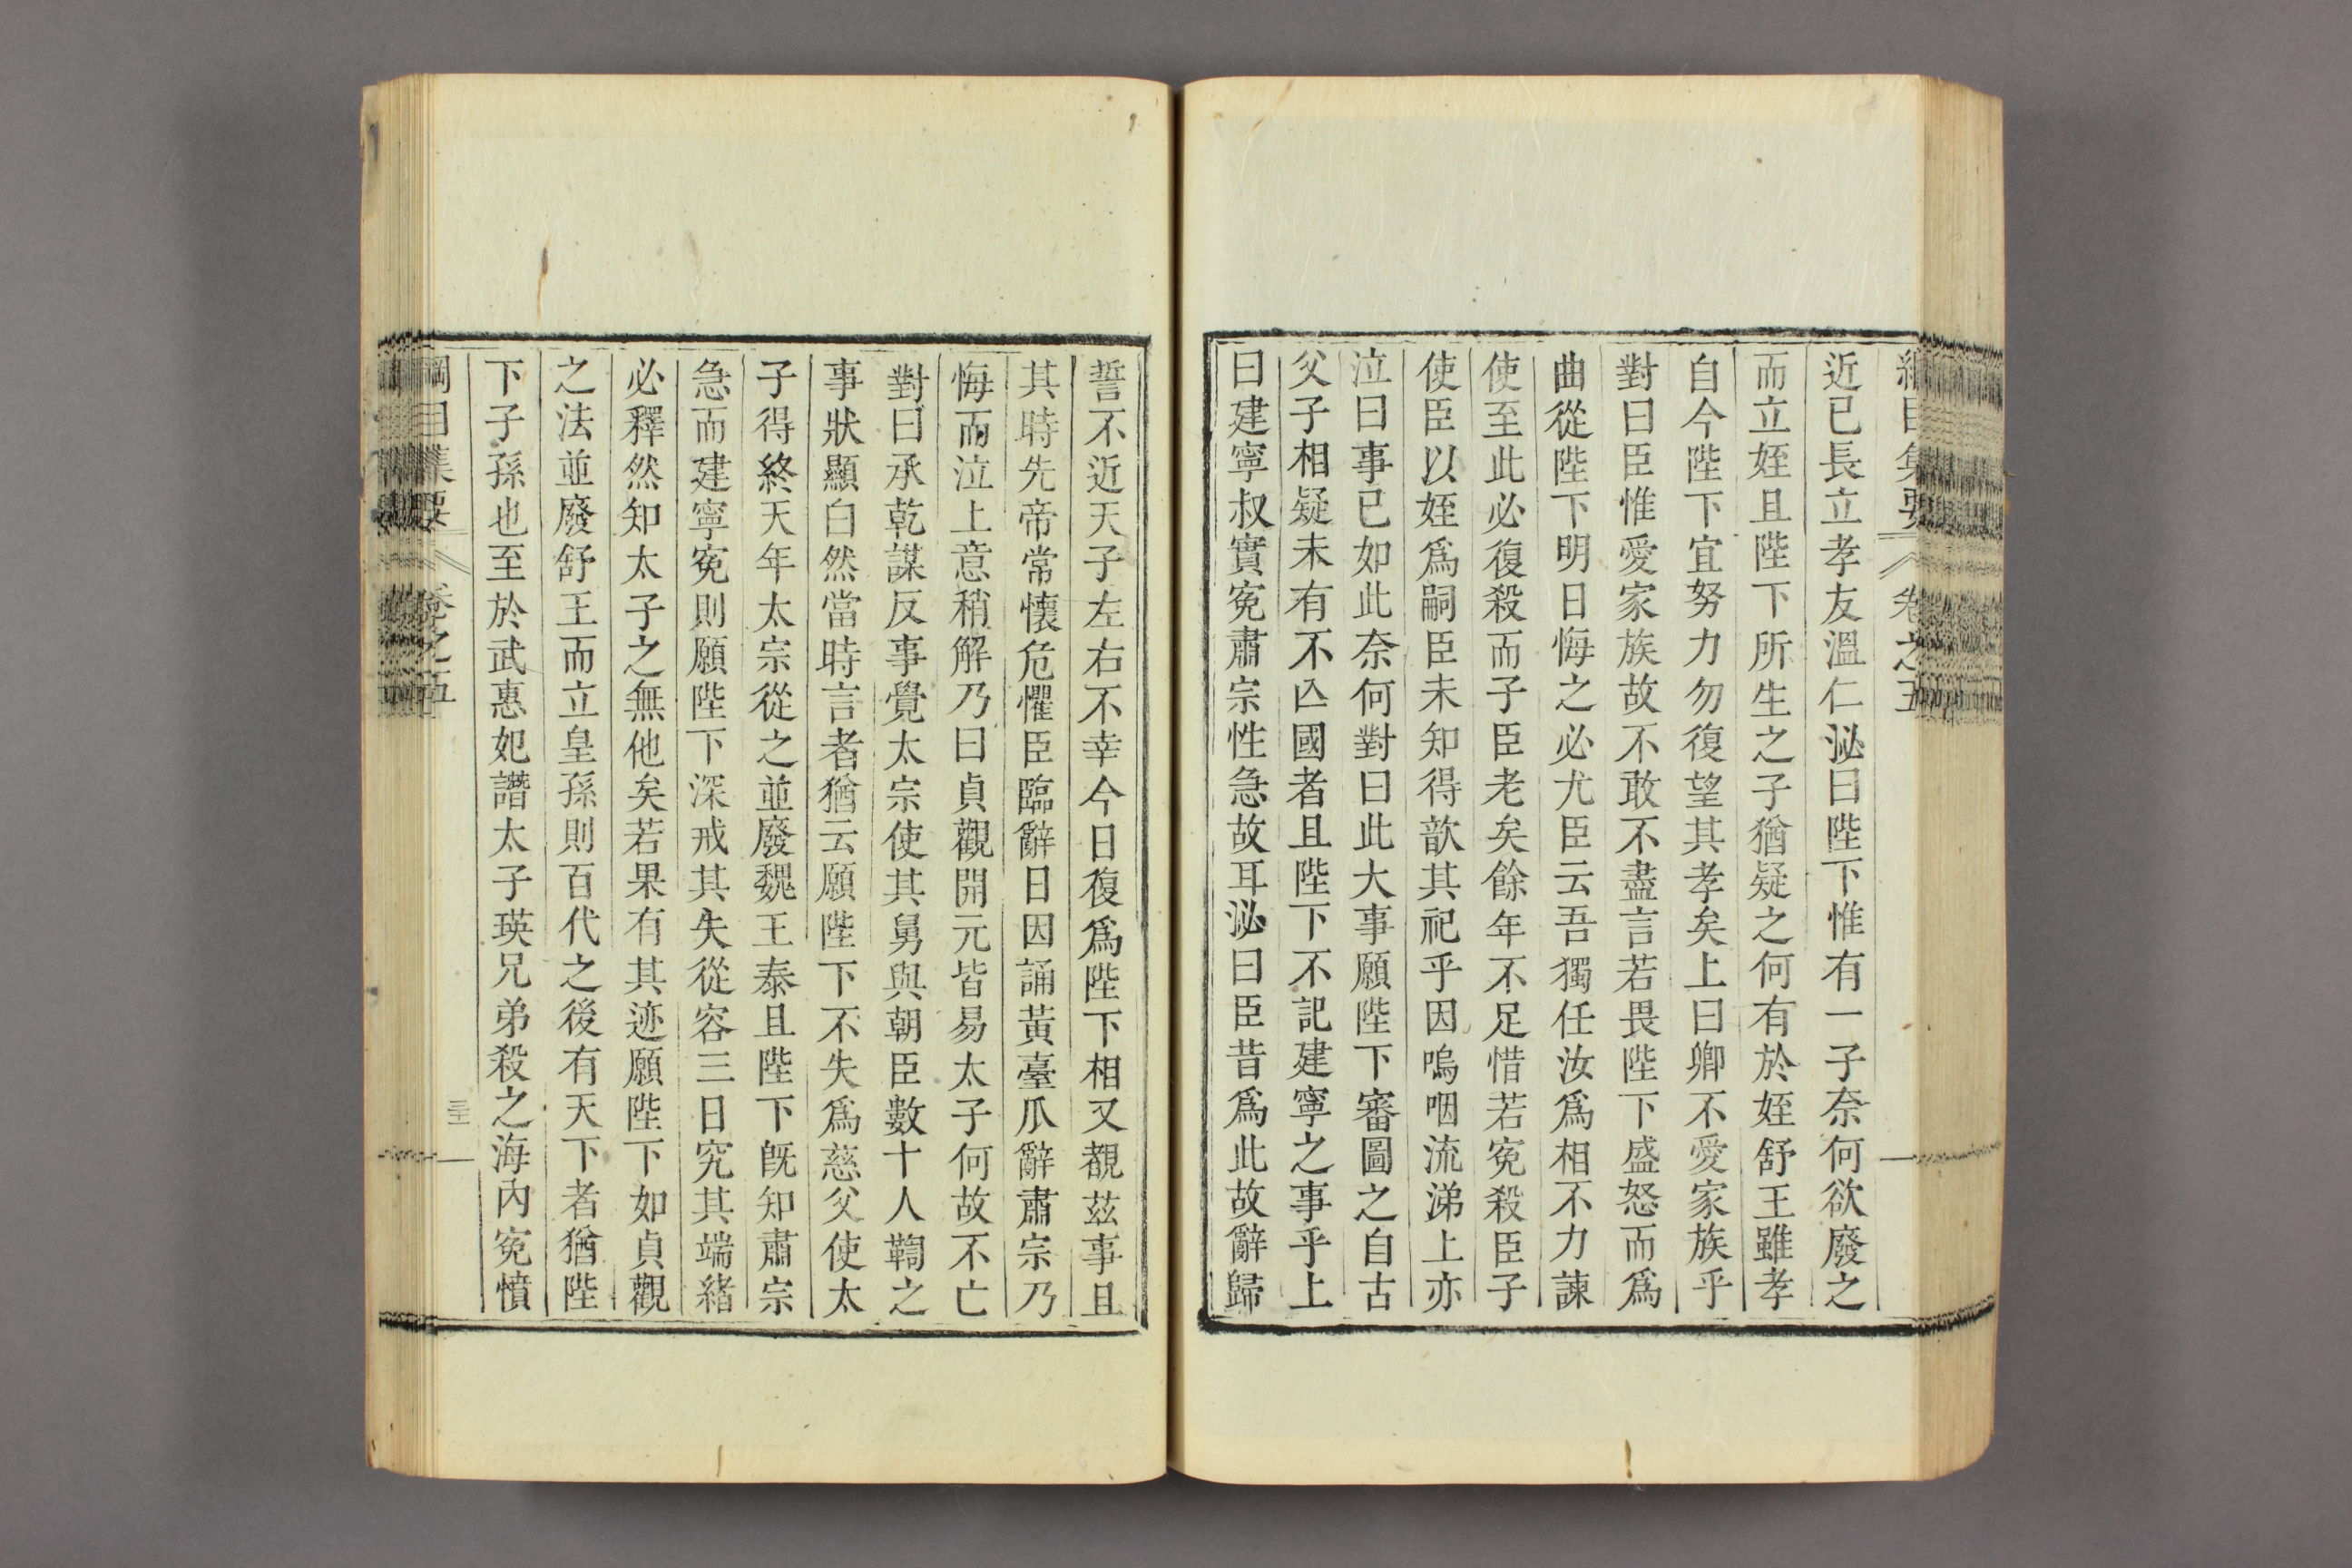 綱目集要 卷之五
近已長立孝友溫仁泌曰陛下惟有一子奈何欲廢之
而立姪且陛下所生之子猶疑之何有於姪舒王雖孝
自今陛下宜努力勿復望其孝矣上曰卿不愛家族乎
對曰臣惟愛家族故不敢不盡言若畏陛下盛怒而爲
曲從陛下明日悔之必尤臣云吾獨任汝爲相不力諫
使至此必復殺而子臣老矣餘年不足惜若寃殺臣子
使臣以姪爲嗣臣未知得歆其祀乎因嗚咽流涕上亦
泣曰事已如此奈何對曰此大事願陛下審圖之自古
父子相疑未有不亾國者且陛下不記建寧之事乎上
曰建寧叔實寃肅宗性急故耳泌曰臣昔爲此故辭歸
誓不近天子左右不幸今日復爲陛下相又覩茲事且
其時先帝常懷危懼臣臨辭日因誦黃臺瓜辭肅宗乃
悔而泣上意稍解乃曰貞觀開元皆易太子何故不亡
對曰承乾謀反事覺太宗使其舅與朝臣數十人鞫之
事狀顯白然當時言者猶云願陛下不失爲慈父使太
子得終天年太宗從之並廢魏王泰且陛下旣知肅宗
急而建寧寃則願陛下深戒其失從容三日究其端緒
必釋然知太子之無他矣若果有其迹願陛下如貞觀
之法並廢舒王而立皇孫則百代之後有天下者猶陛
下子孫也至於武惠妃譖太子瑛兄弟殺之海內寃憤
綱目集要 卷之五